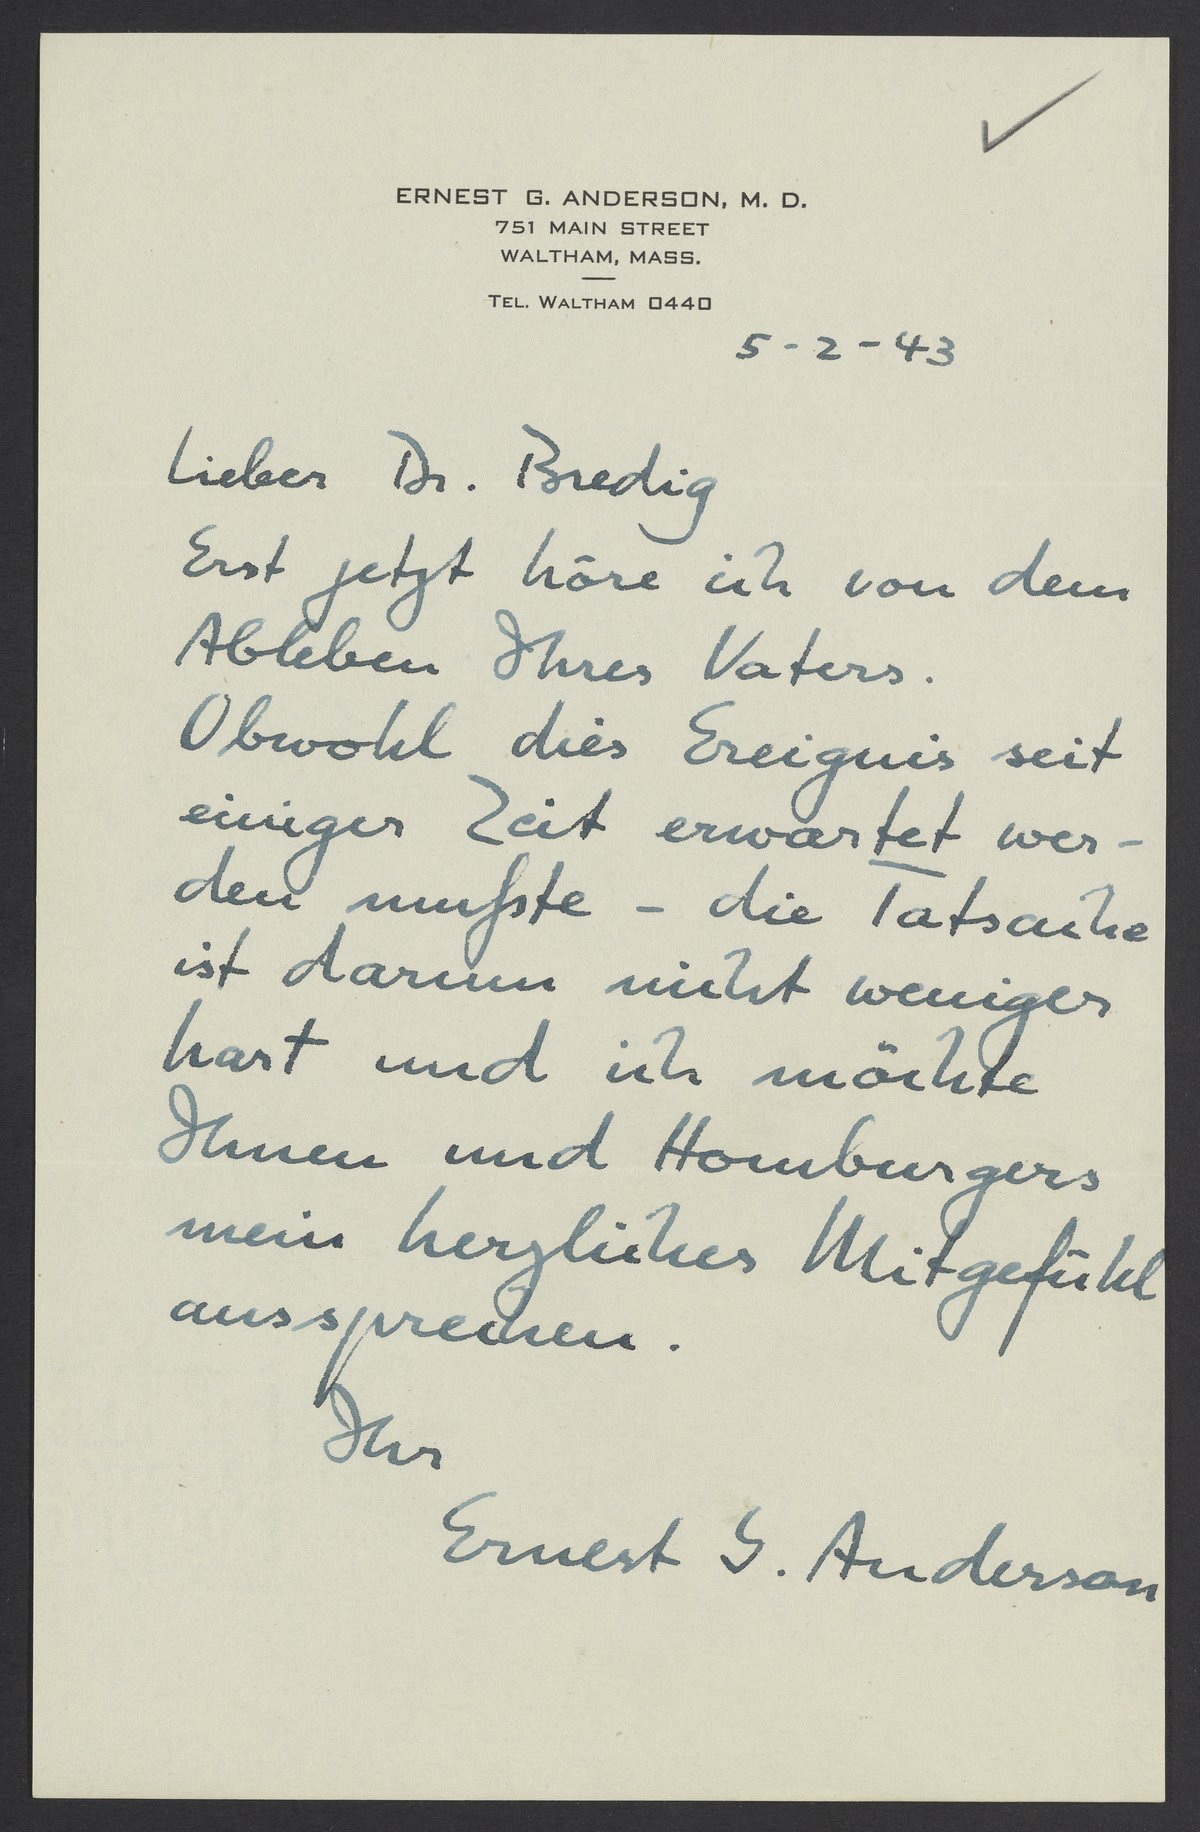 ERNEST G. ANDERSON, M. D.
751 MAIN STREET
WALTHAM, MASS.
TEL. WALTHAM 0440
5-2-43
Lieber Dr. Bredig
Erst jetzt höre ich von dem
Ableben Ihres Vaters.
Obwohl dies Ereignis seit
einiger Zeit erwartet wer-
den mußte - die Tatsache
ist darum nicht weniger
hart und ich möchte
Ihnen und Homburgers
mein herzliches Mitgefühl
aussprechen.
Ihr
Ernest G. Anderson